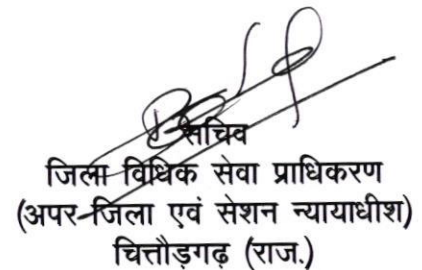 सचिव
जिला विधिक सेवा प्राधिकरण
(अपर जिला एवं सेशन न्यायाधीश)
चित्तौड़गढ़ (राज.)